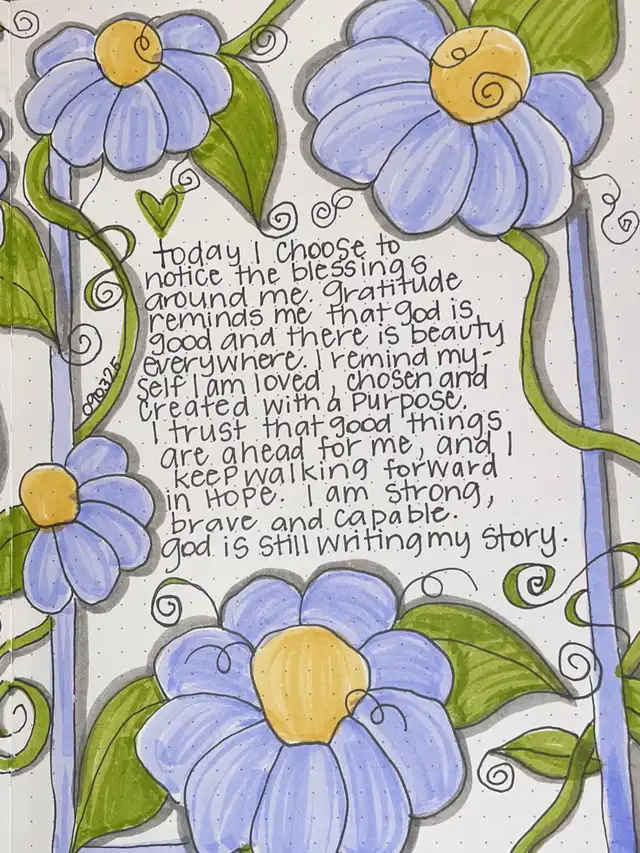 today I choose to
notice the blessings
around me. gratitude
reminds me that god is
good and there is beauty
everywhere. I remind my-
self I am loved, chosen and
created with a purpose.
I trust that good things
are ahead for me, and I
keep walking forward
in HOPE. I am strong,
brave and capable.
god is still writing my story.
090325